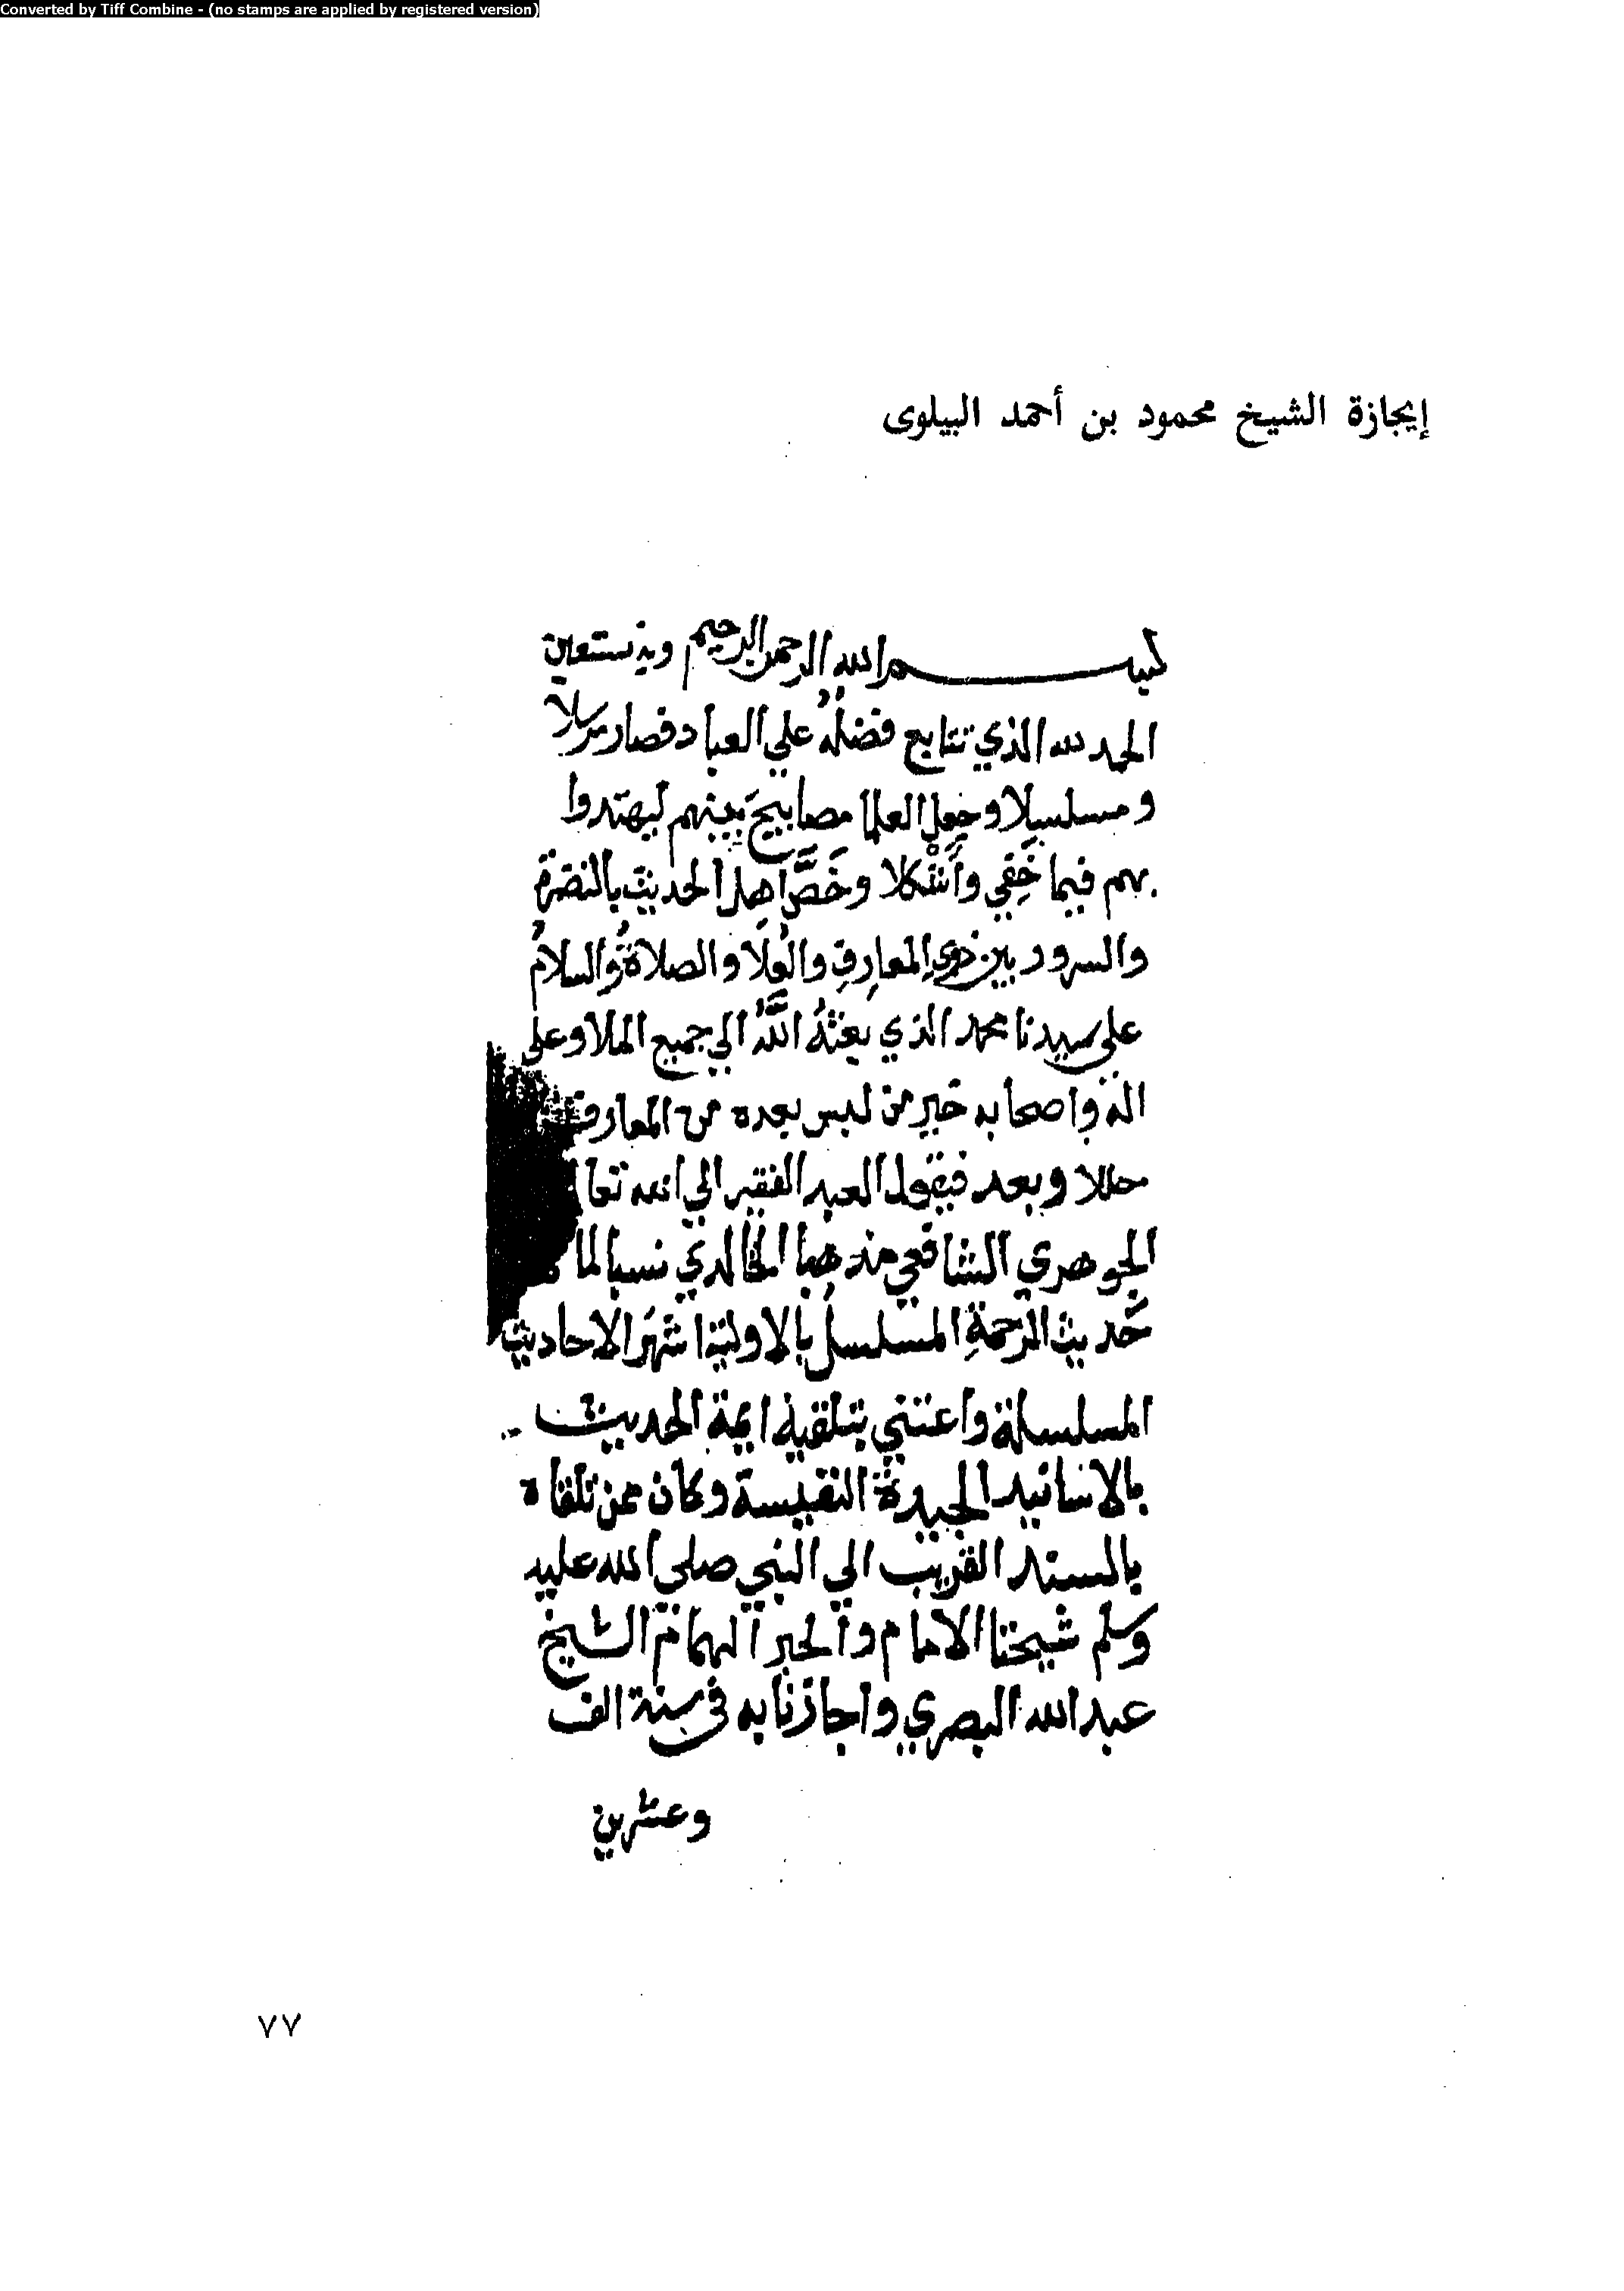 Converted by Tiff Combine - (no stamps are applied by registered version)
إيجازة الشيخ محمود بن أحمد البيلوى
بسم الله الرحمن الرحيم وبه نستعين
الحمد لله الذي تتابع فضلهُ علي العباد فصار مرسلا
ومسلسلا وجعل العلما مصابيحَ بينهم ليهتدوا
بهم فيما خَفِي وأَشْكلا وخَصَّ اهل الحديث بالنضرة
والسرور بين ذوي المعارِفِ والعُلَا والصلاةُ والسلامُ
علي سيدنا محمد الذي بعثهُ اللَّهُ الي جميع الملا وعلى
اله واصحابه خير من ليس بعده من المعارف
حللا وبعد فيقول العبد الفقير الي الله تعا
الجوهري الشافعي مذهبا الخالدي نسبا لما
حَديث الرحمةِ المسلسلُ بالاولية اشهَر الاحاديث
المسلسلة واعتني بتلقيه ايمة الحديث
بالاسانيد الجيدة النفيسة وكان ممن تلقاه
بالسند القريب الي النبي صلى الله عليه
وسلم شيخنا الامام والحبر الهمام الشيخ
عبد الله البصري واجازنا به في سنة الف
وعشرين
٧٧